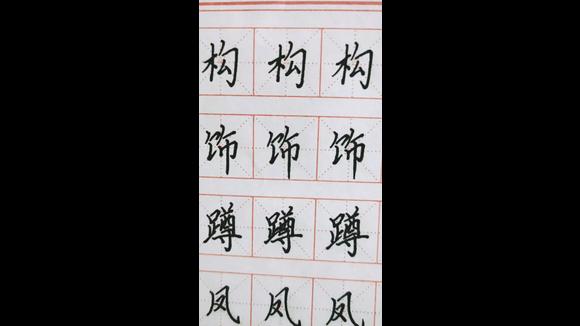 构构构
饰饰饰
蹲蹲蹲
凤凤凤